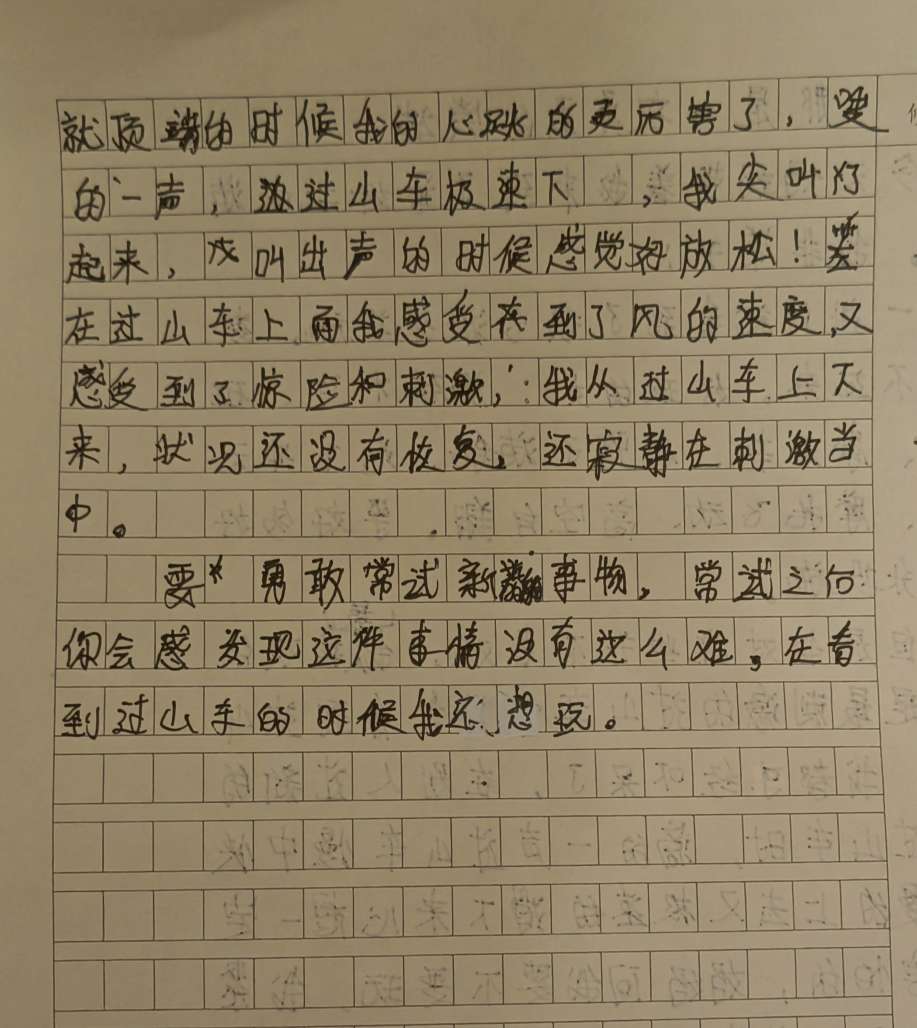 就顶端的时候我的心跳的更厉害了，
的一声，过山车极速下，我尖叫了
起来，叫出声的时候感觉好放松！
在过山车上面我感受到了风的速度，又
感受到了惊险和刺激，我从过山车上下
来，状况还没有恢复，还寂静在刺激当
中。
要勇敢常试新事物，常试之后
你会感发现这件事情没有这么难，在看
到过山车的时候我还想玩。